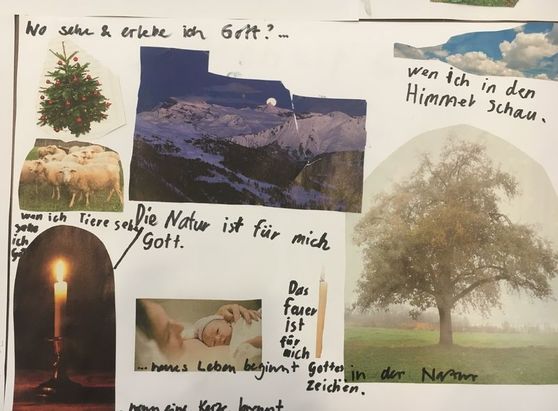 Wo sehe & erlebe ich Gott?...
wen ich in den
Himmel schau.
wen ich Tiere sehe
sehe
ich
Die Natur ist für mich
Gott.
Das
feuer
ist
für
mich
Gottes
zeichen.
... neues Leben beginnt
in der Natur
wenn eine Kerze brennt